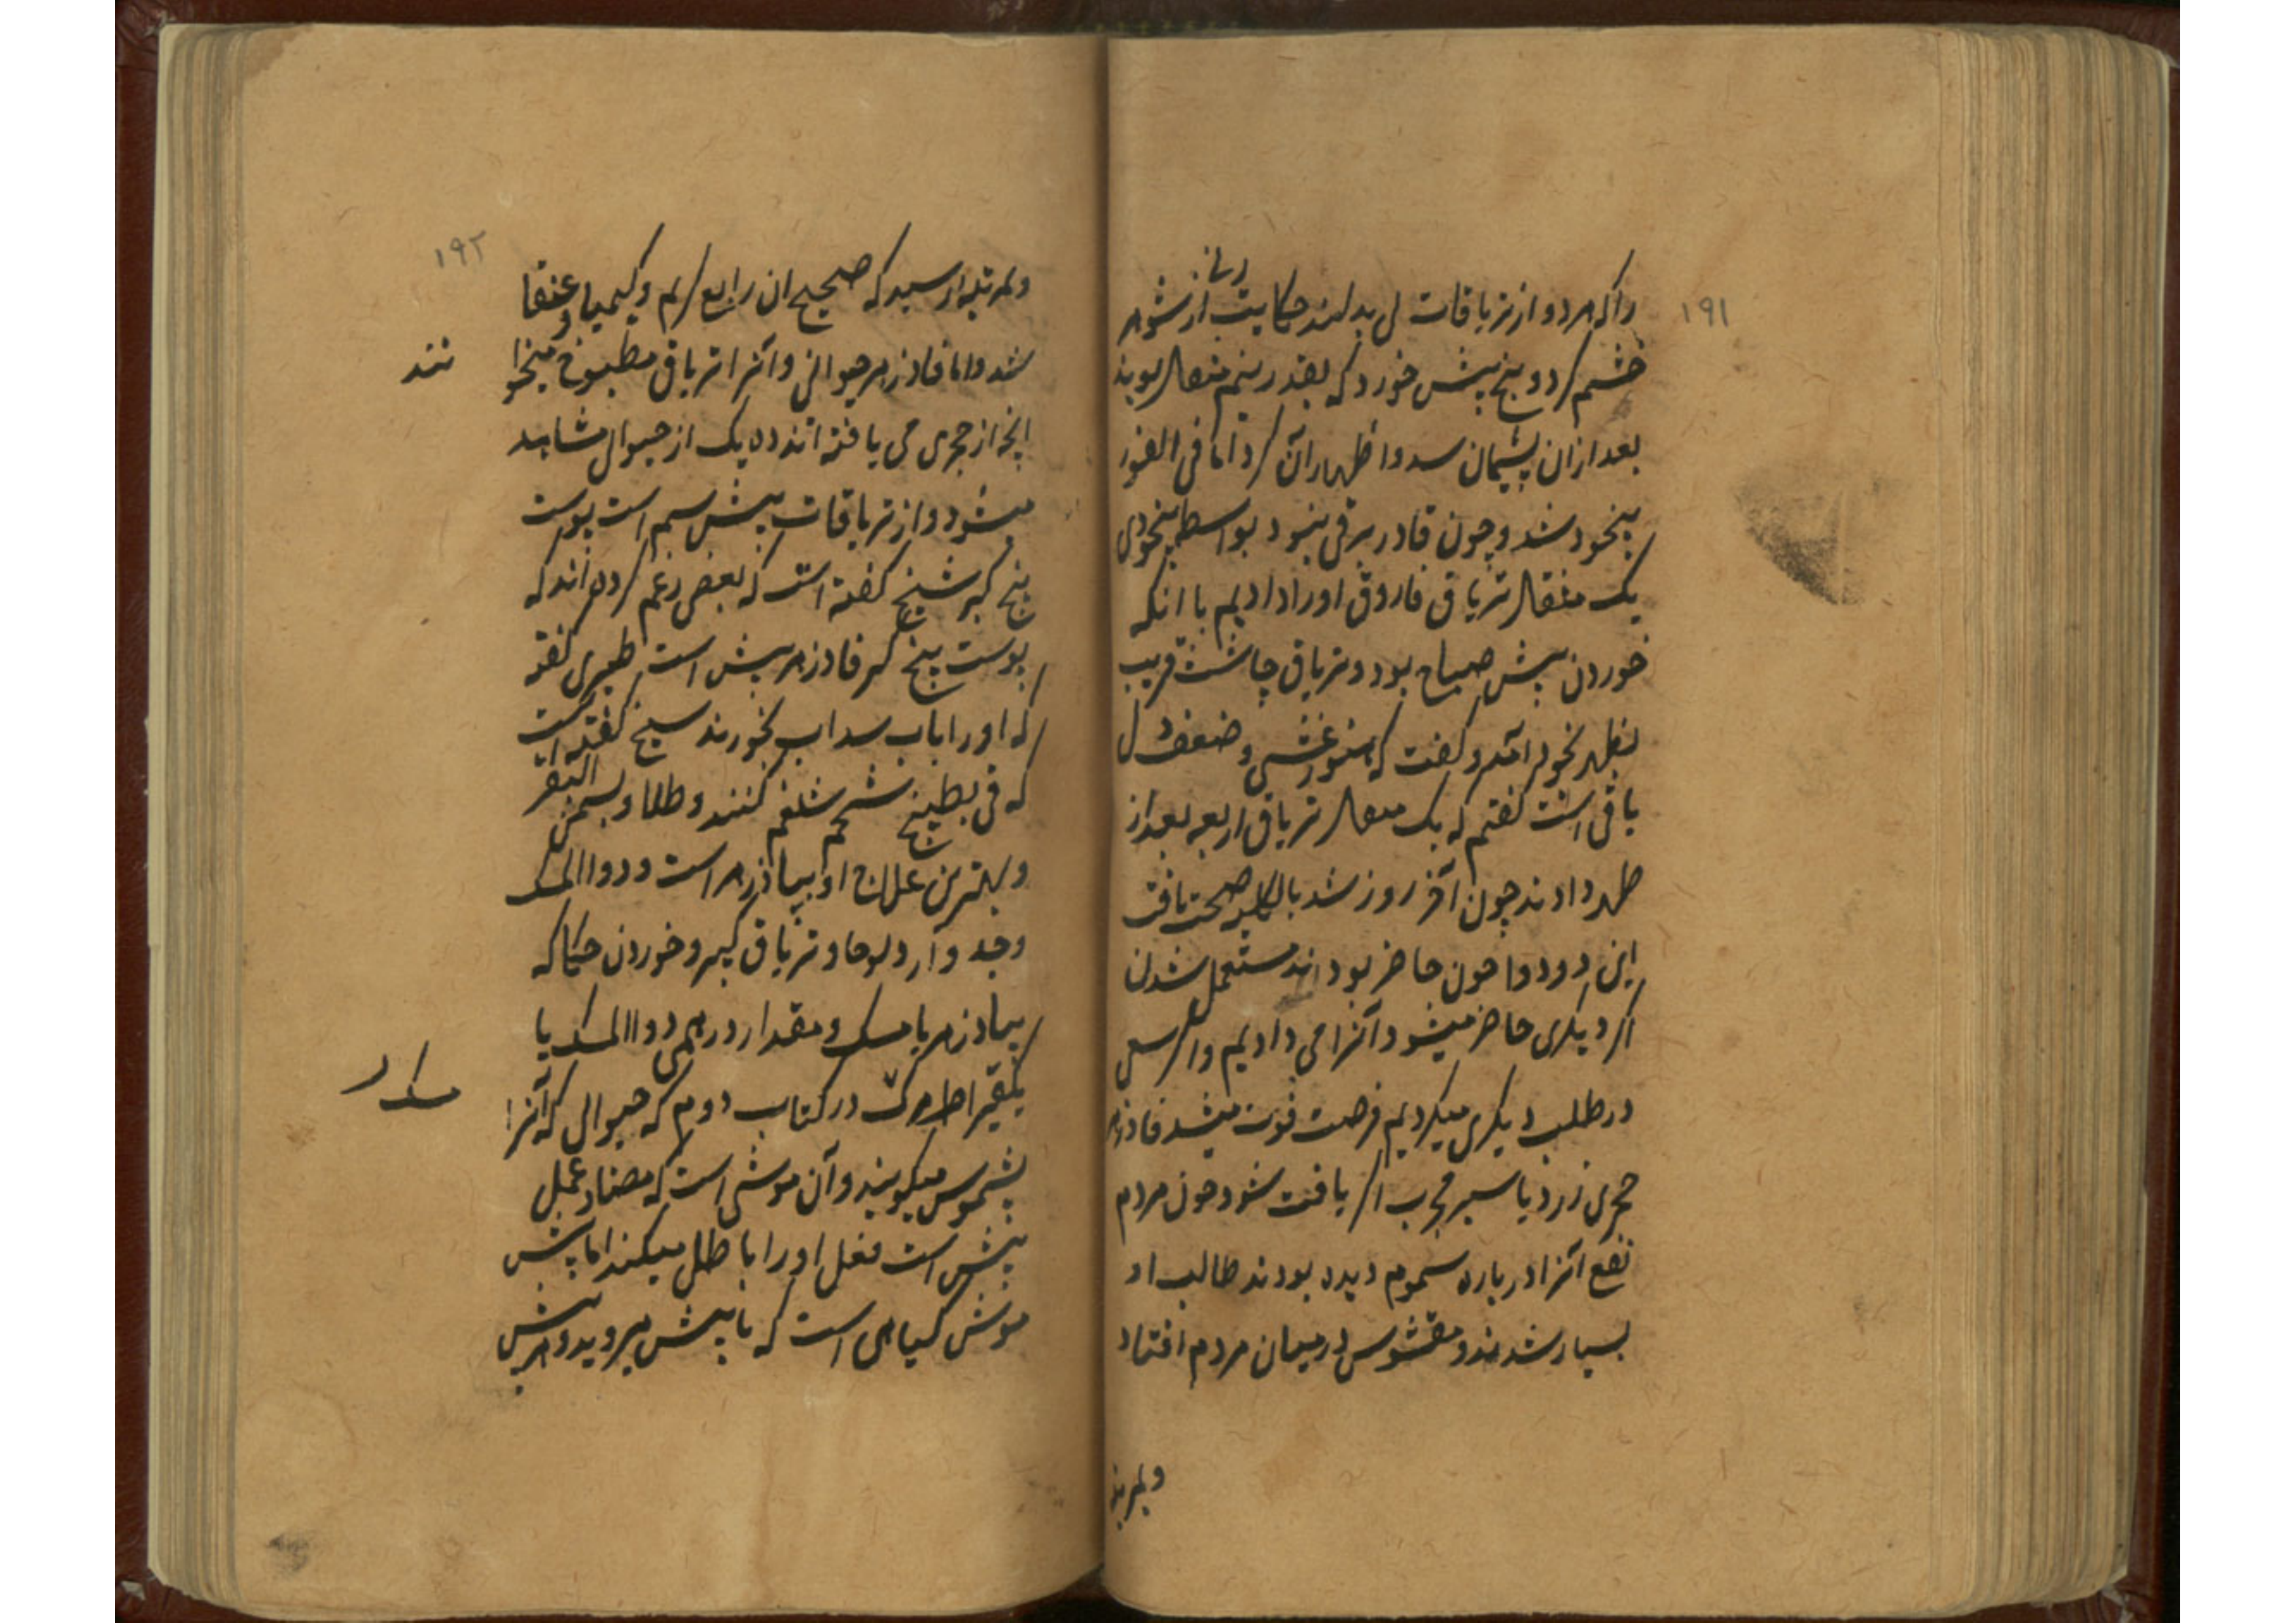 ۱۹۱
را که هر دو از تریاقات بی بدلند حکایت زنی از شوهر
خشم کرد و بیخ بیش خورد که بقدر نیم مثقال بود
بعد از ان پشیمان شد و اظهار آن کرد اما فی الفور
بیخود شد و چون قادر بر قی نبود بواسطه بیخودی
یک مثقال تریاق فاروق او را دادیم با انکه
خوردن بیش صباح بود و تریاق چاشت قریب
بظهر بخود آمد و گفت که هنوز غشی و ضعف دل
باقی است گفتم که یک مثقال تریاق اربعه بعد از
ظهر دادند چون آخر روز شد بالکلیه صحت یافت
این دو دوا چون حاضر بودند مستعمل شدن
اگر دیگری حاضر میشود آنرا می دادیم و اگر سعی
در طلب دیگری میکردیم فرصت فوت میشد فادزهر
حجری زرد یا سبز مجرب اگر یافت شود چون مردم
نفع آنرا در باره سموم دیده بودند طالب او
بسیار شدند و مغشوش در میان مردم افتاد
و بمرتبه
۱۹۲
و بمرتبه رسید که صحیح ان رابع کرم و کیمیا و عنقا
شد و اما فادزهر حیوانی و آنرا تریاق مطبوخ میخوا
نند
انچه از حجری می یافته اند ده یک از حیوانی مشاهد
میشود و از تریاقات بیش سم است پوست
بیخ کبر شیخ گفته است که بعضی زعم کرده اند که
پوست بیخ کبر فادزهر بیش است طبری گفته
که او را باب سداب بخورند شیخ گفته است
که فی بطبیخ شحم شلغم کنند و طلا و بسمن البقر
و بهترین علاج او بپادزهر است و دواالمسک
و جدوار و لوحا و تریاق کبیر و خوردن حکاکه
پیادزهر با مسک و مقدار درهمی دواالمسک یا
یکقیراط مسک در کتاب دوم که حیوانی که آنرا
بیشموس میگویند و آن موشی است که مضاد عمل
بیش است فعل او را باطل میکند اما بیش
موش گیاهی است که با بیش میروید و هر بیش